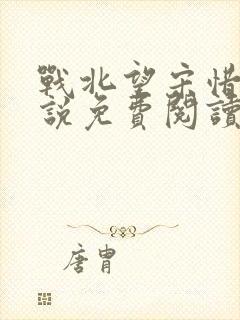 戰北望宋惜
說免費閱讀
唐胄